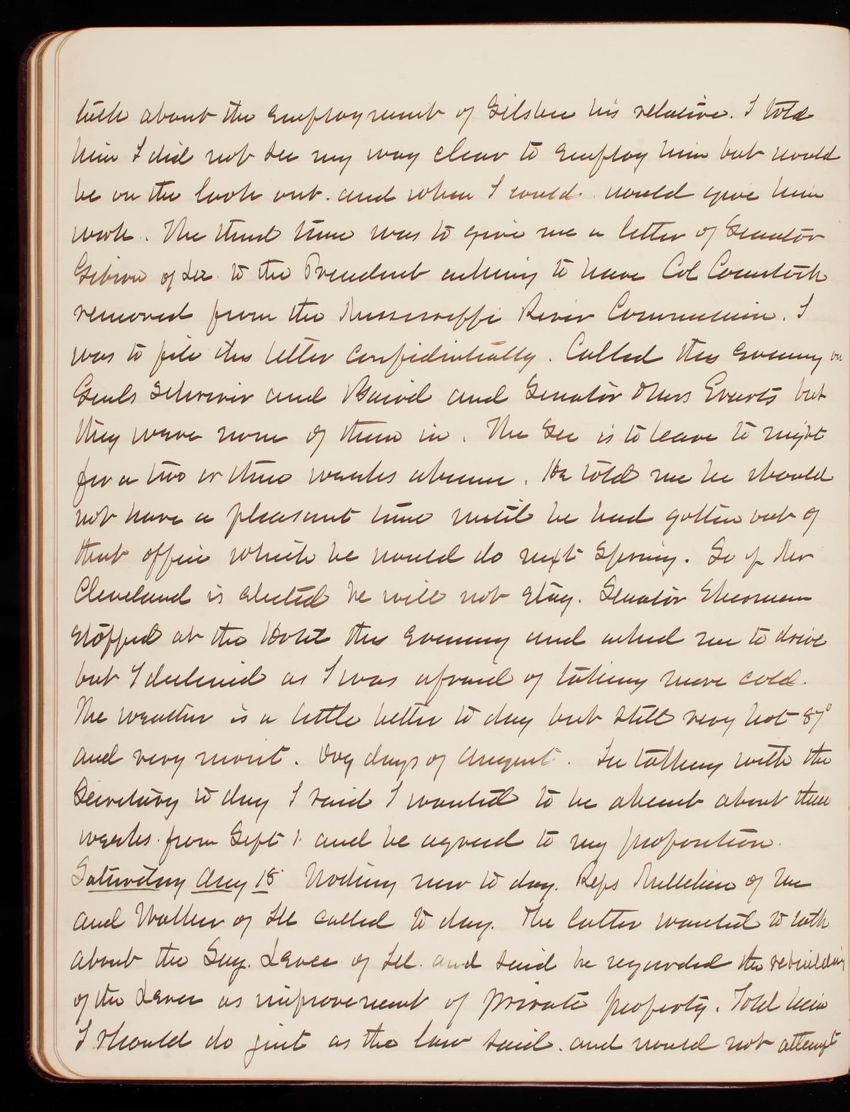 talk about the employment of Gilshee his relative. I told
him I did not see my way clear to employ him but would
be on the look out. and when I could. would give him
work. The third time was to give me a letter of Senator
Gibson of La. to the President asking to have Col Comstock
removed from the Mississippi River Commission. I
was to file this letter confidentially. Called this evening on
Genls Schriver and Baird and Senator Mrs Evarts but
they were none of them in. The Sec is to leave to night
for a two or three weeks absence. He told me he should
not have a pleasant time until he had gotten out of
that office which he would do next Spring. So if Mr
Cleveland is elected he will not stay. Senator Sherman
stopped at the Hotel this evening and asked me to drive
but I declined as I was afraid of taking more cold.
The weather is a little better to day but still very hot 87°
and very moist. Dog days of August. In talking with the
Secretary to day I said I wanted to be absent about three
weeks from Sept 1. and he agreed to my proposition.
Saturday Aug 18 Nothing new to day. Reps Milliken of Me
and Walker of Ill called to day. The latter wanted to talk
about the Levee of Ill. and said he regarded the rebuilding
of the Levee as improvement of private property. Told him
I should do just as the law said. and would not attempt